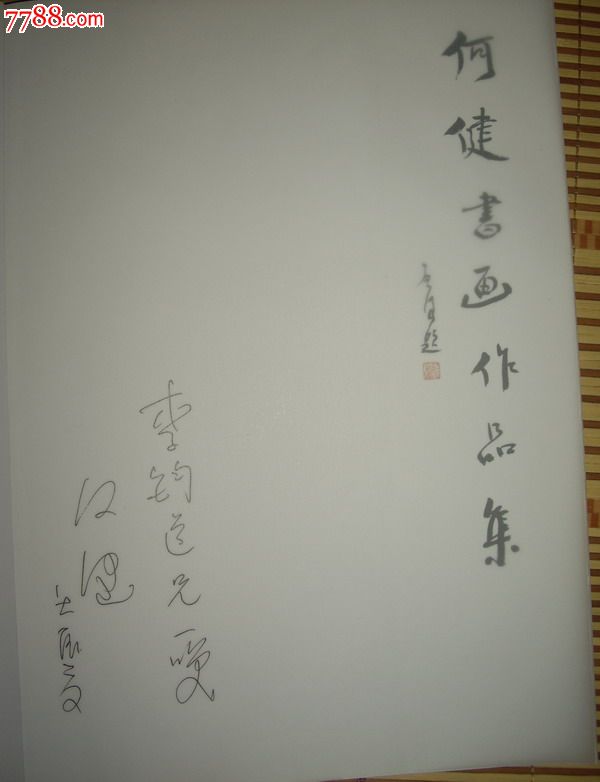 7788.com
何健書画作品集
题
李钧道兄一咲
何健